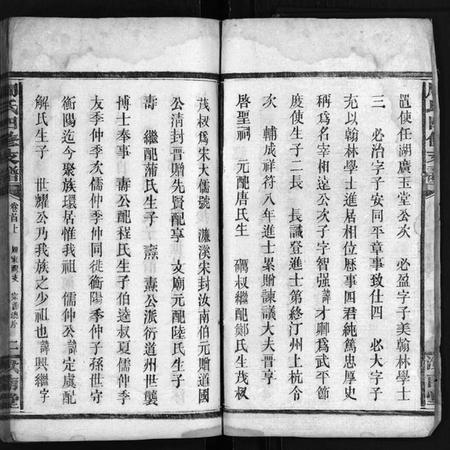 置使任湖廣玉堂公次　必盈字子美翰林學士
三　必治字子安同平章事致仕四　必大字子
充以翰林學士進居相位歷事四君純篤忠厚史
稱爲名宰相遠公次子字智強諱才嗣爲武平節
度使生子二長　長誠登進士第終汀州上杭令
次　輔成祥符八年進士累贈諫議大夫晋贈
啓聖祠　元配唐氏生　礪叔繼配鄭氏生茂叔
茂叔爲宋大儒號　濂溪宋封汝南伯元贈道國
公清封晋贈先賢配享　文廟元配陸氏生子
壽　繼配蒲氏生子　燾　燾公派衍道州世襲
博士奉事　壽公配程氏生子伯逵叔夏儒仲虞
友季仲季次儒仲季仲同徙衡陽季仲子孫世守
衡陽迄今聚族環居惟我祖　儒仲公諱定虞配
解氏生子　世耀公乃我族之少祖也諱興繼字
周氏四修支譜
卷首上
二
汝南堂